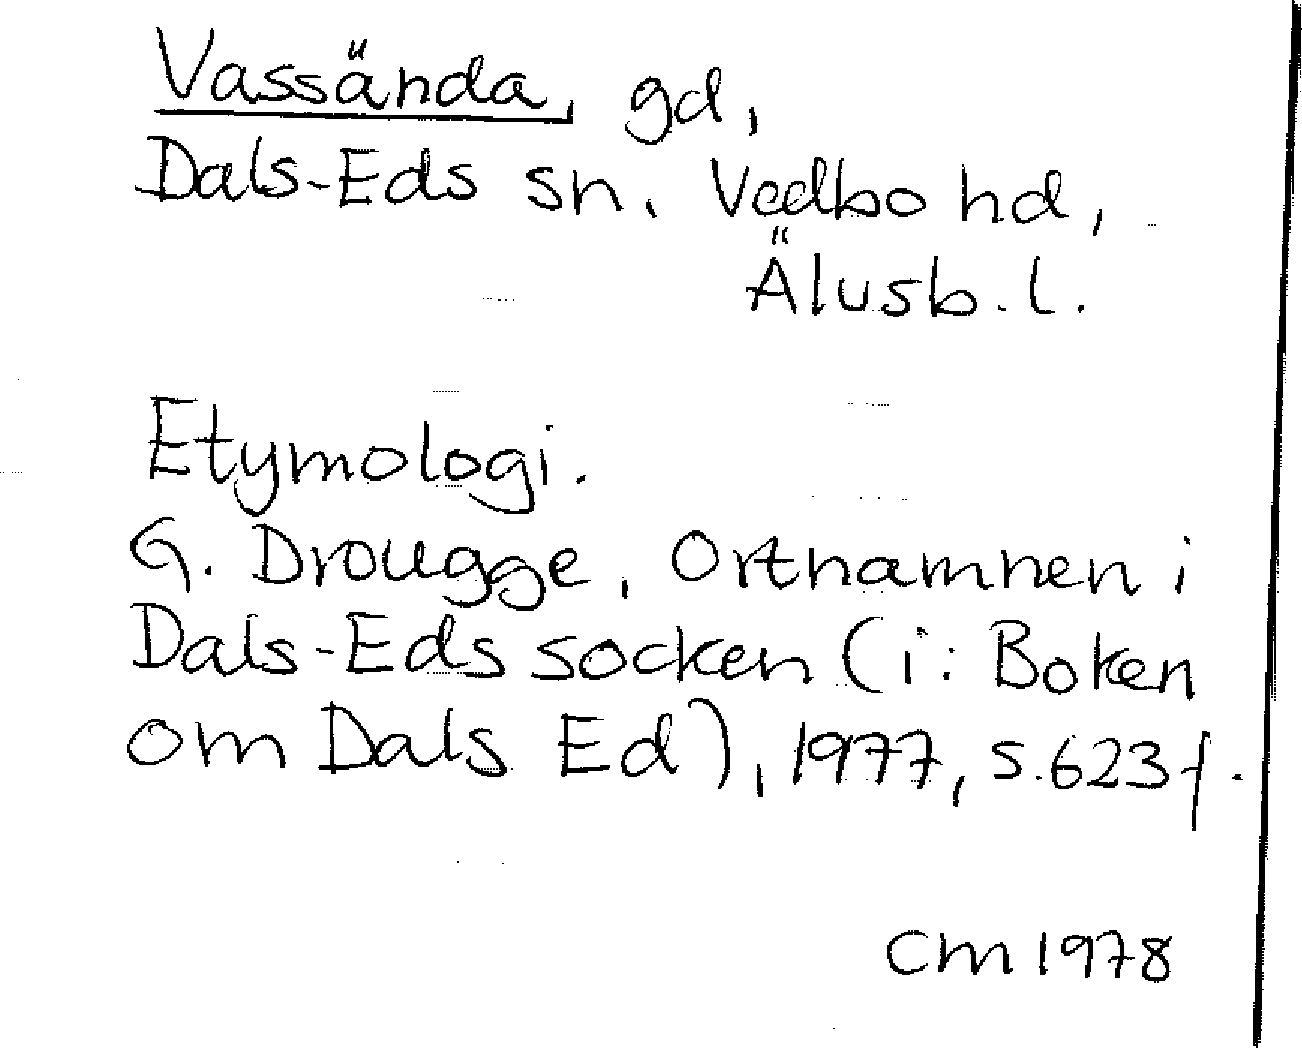 Vassända, gd,
Dals-Eds sn. Vedbo hd,
Älvsb. l.
Etymologi.
G. Drougge, Ortnamnen i
Dals-Eds socken (i: Boken
om Dals Ed), 1977, s. 623 f.
CM 1978